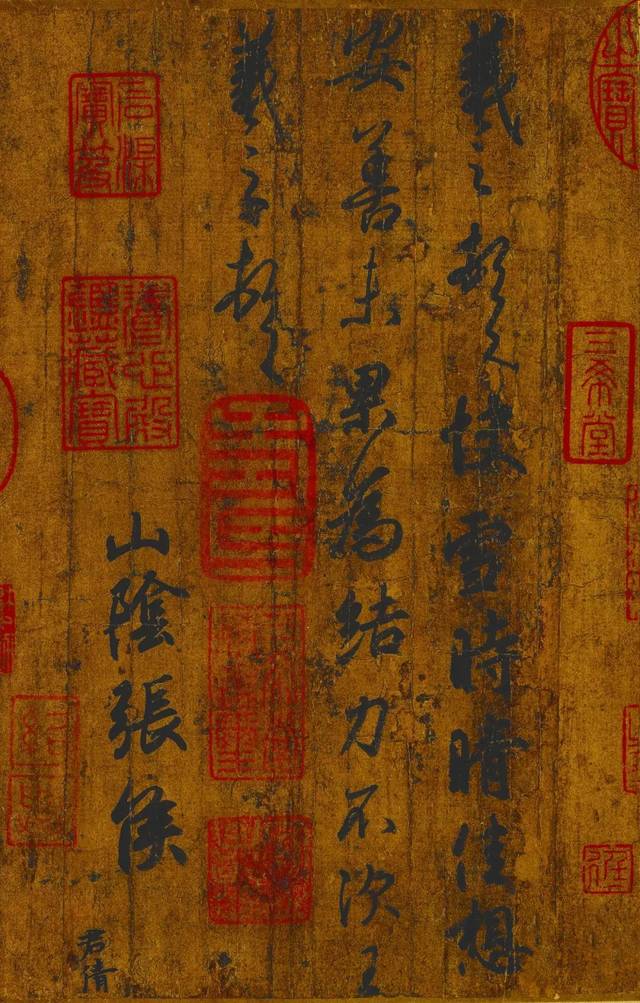 三希堂
羲之頓首快雪時晴佳想
安善未果為結力不次王
羲之頓首
山陰張侯
君倩
石渠寶笈
養心殿鑑藏寶